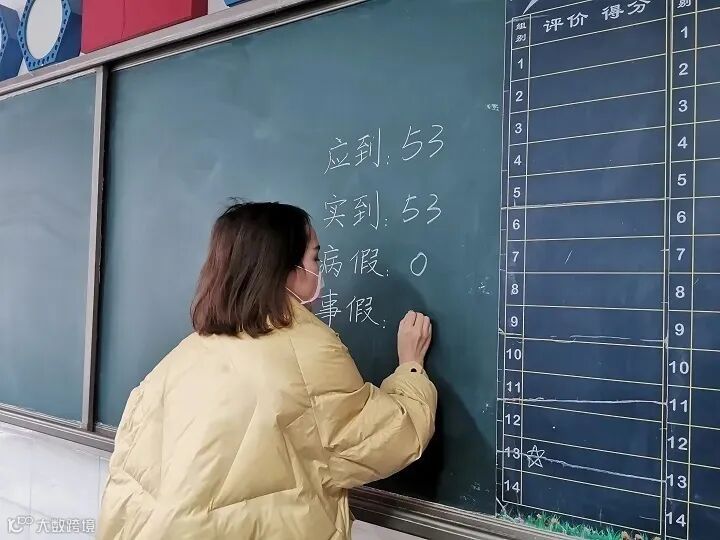 应到：53
实到：53
病假：0
事假：
组别 评价 得分
1
2
3
4
5
6
7
8
9
10
11
12
13
14
组别
1
2
3
4
5
6
7
8
9
10
11
12
13
14
大数跨境